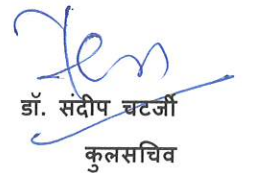 डॉ. संदीप चटर्जी
कुलसचिव